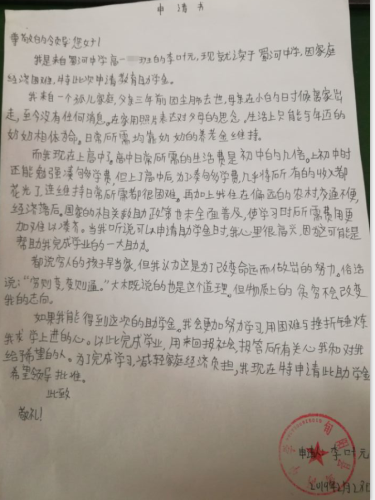 申请书
尊敬的领导:您好!
我是来自蜀河中学高一 班的李叶元,现就读于蜀河中学,因家庭
经济困难,特此次申请教育助学金。
我来自一个孤儿家庭,父亲三年前因去世,母亲在小的时候离家出
走,至今没有任何消息。在家用照片表达对父母的思念,生活上只能与年迈的
奶奶相依为命。日常所需均靠奶奶的养老金维持。
而我现在上高中了,高中日常所需的生活费是初中的几倍。上初中时
还能勉强凑够学费,但上了高中后,为了凑够学费,几乎得所有的收入都
花光了,连维持日常所需都很困难。再加上我住在偏远的农村,交通不便,
经济落后。国家的相关救助政策尚未全面普及,使学习时所需费用更
加难以凑齐。当我听说可以申请助学金时,我心里很高兴,因这可能是
帮助我完成学业的一大助力。
都说穷人的孩子早当家,但我认为这是为了改变命运而做出的努力。俗话
说:"穷则变,变则通。"大木既说的也是这个道理。但物质上的贫穷不会改变
我的志向。
如果我能得到这次的助学金。我会更加努力学习,用困难与挫折锤炼
我求学上进的心。以此完成学业,用来回报社会,报答所有关心我和对我
给予希望的人。为了完成学习,减轻家庭经济负担,我现在特申请此助学金
希望领导批准。
此致
敬礼!
申请人:李叶元